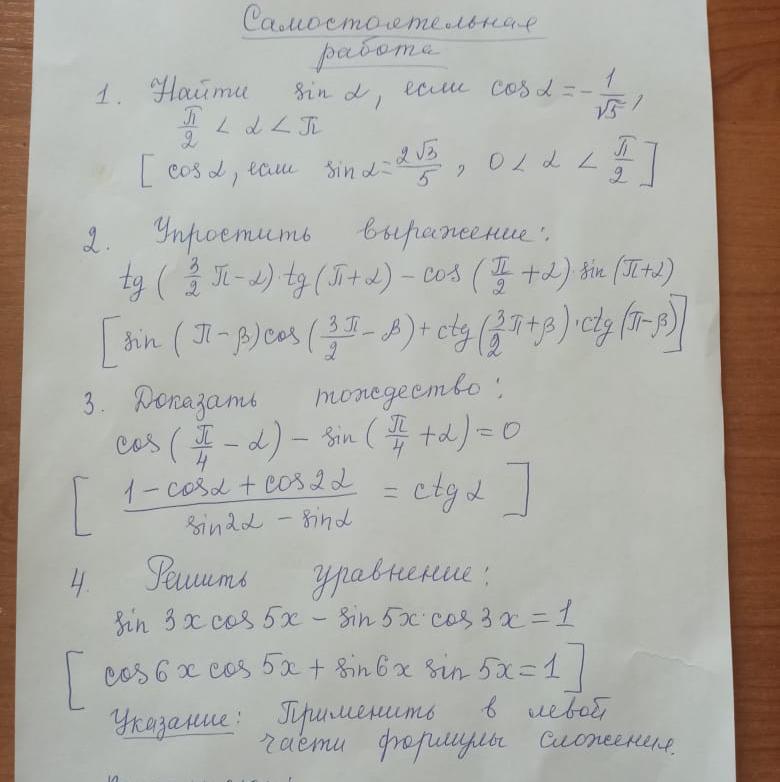 Самостоятельная
работа
1. Найти sin α, если cos α = -1/√5,
π/2 < α < π
[ cos α, если sin α = 2√3/5, 0 < α < π/2 ]
2. Упростить выражение:
tg( 3/2 π-α)·tg(π+α) - cos(π/2 +α)·sin(π+α)
[ sin( π-β)cos(3π/2 - β)+ctg(3/2 π+β)·ctg(π-β)]
3. Доказать тождество:
cos(π/4 - α) - sin(π/4 + α) = 0
[ (1-cosα + cos2α)/(sin2α - sinα) = ctg α ]
4. Решить уравнение:
sin 3x cos 5x - sin 5x·cos 3x = 1
[ cos 6x cos 5x + sin 6x sin 5x = 1 ]
Указание: Применить в левой
части формулы сложения.